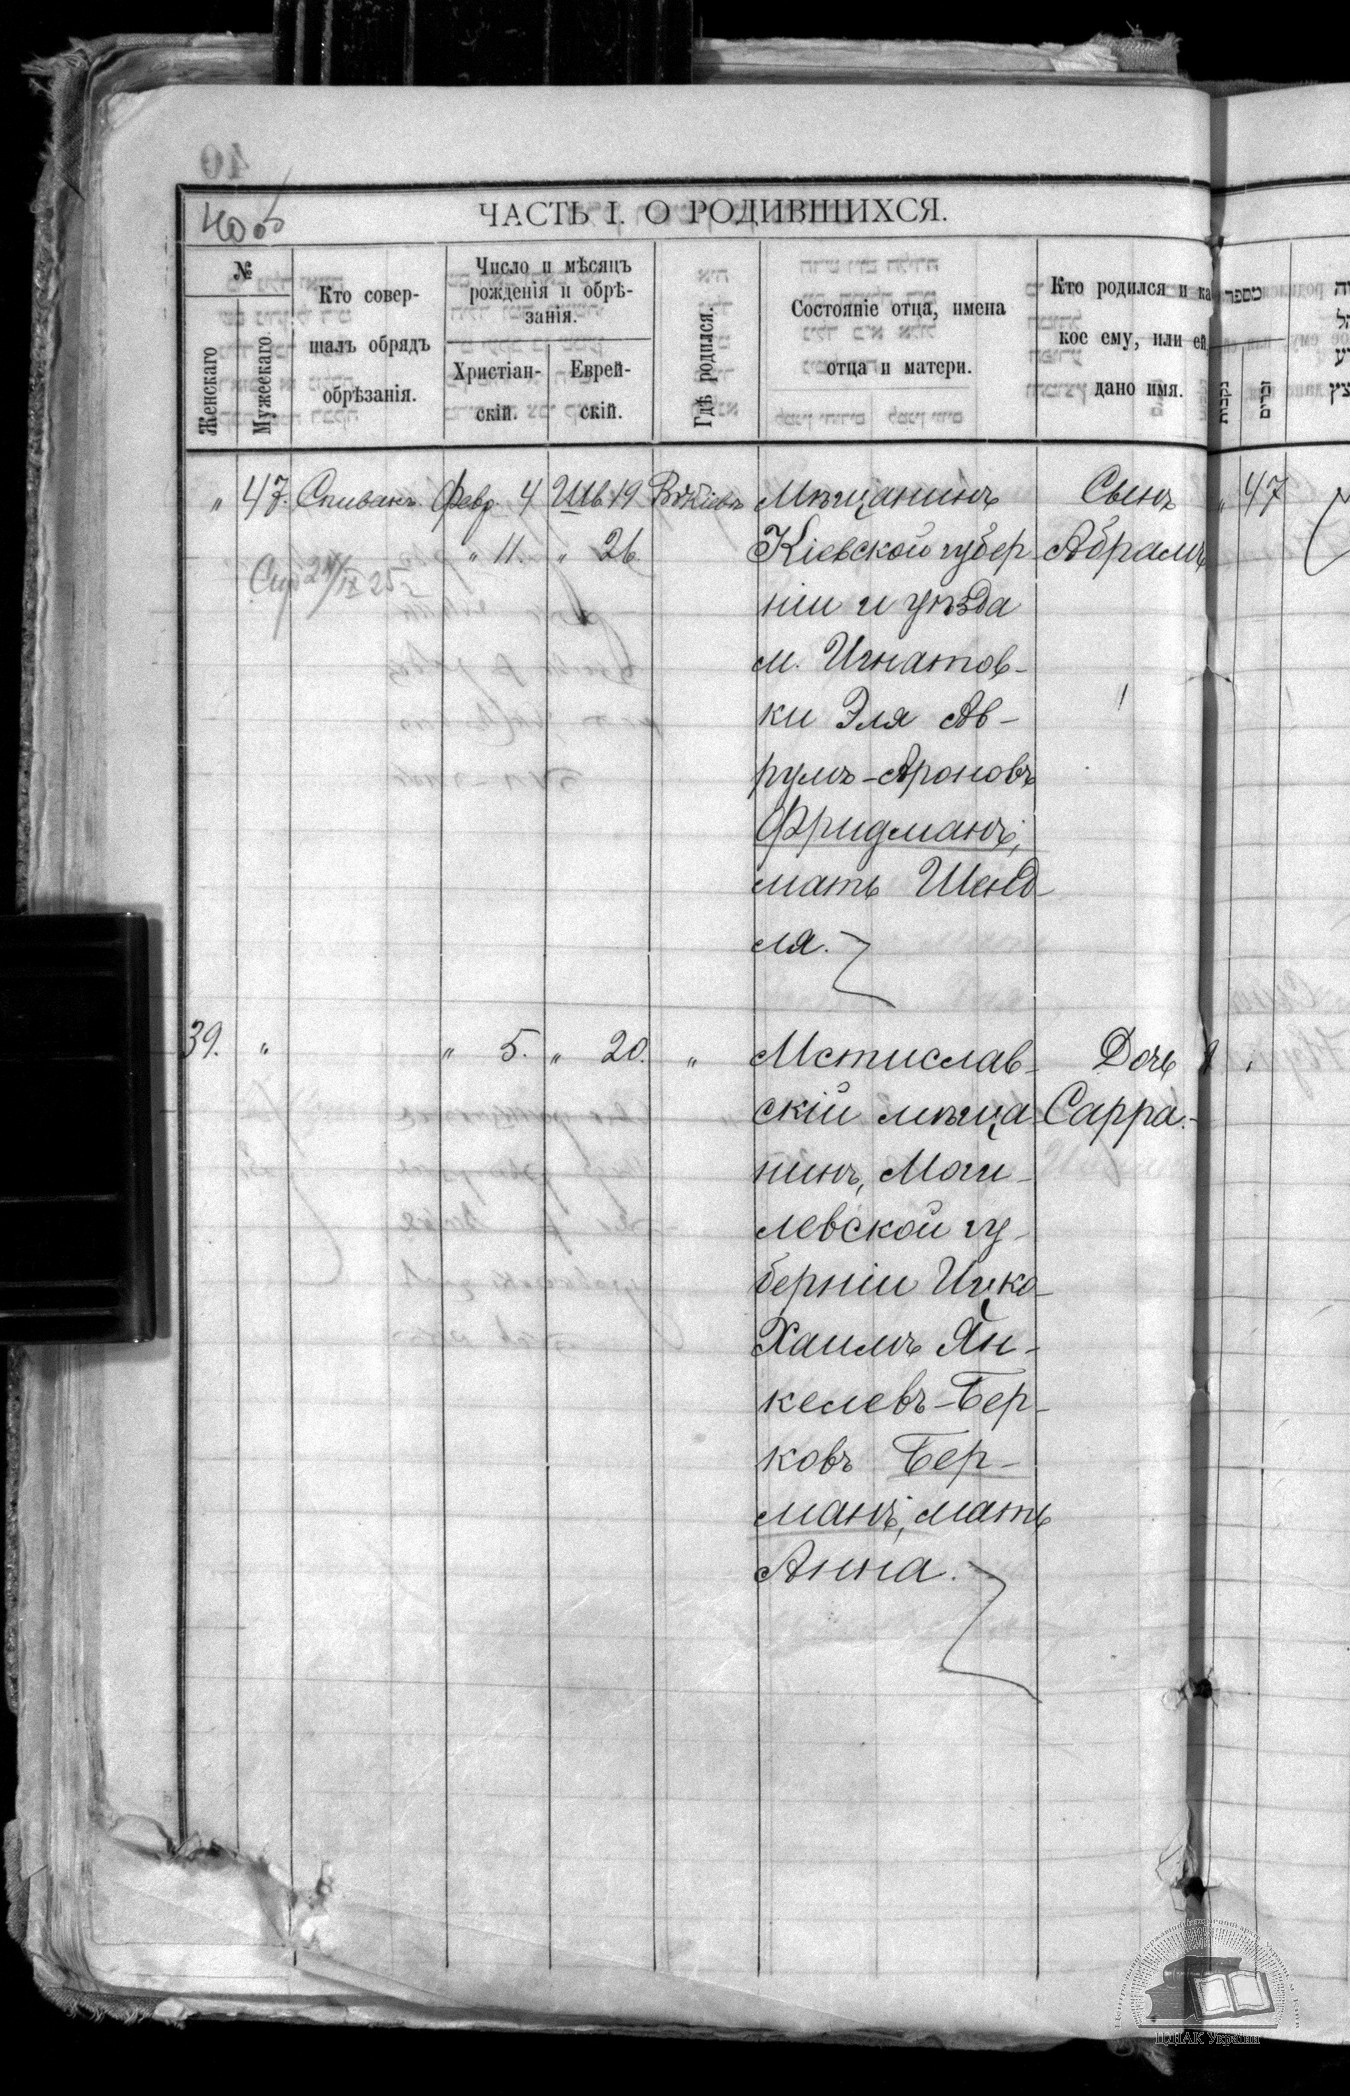 40
40 об
ЧАСТЬ I. О РОДИВШИХСЯ.
№
Женскаго
Мужескаго
Кто совер-
шалъ обрядъ
обрѣзанія.
Число и мѣсяцъ
рожденія и обрѣ-
занія.
Христіан-
скій.
Еврей-
скій.
Гдѣ родился.
Состояніе отца, имена
отца и матери.
Кто родился и ка
кое ему, или ей,
дано имя.
מספר
„ 47. Спивакъ Февр. 4 Шв. 19 Въ Кіевѣ Мѣщанинъ Сынъ „ 47
„ 11. „ 26. Кіевской губер Абрамъ
ніи и уѣзда
м. Игнатов-
ки Эля Ав-
румъ-Ароновъ
Фридманъ,
мать Шенд-
ля.
39. „ „ 5. „ 20. „ Мстислав- Дочь
скій мѣща Сарра.-
нинъ, Моги-
левской гу-
берніи Ицко-
Хаимъ Ян-
келевъ-Бер-
ковъ Бер-
манъ, мать
Анна.
ЦДІАК України